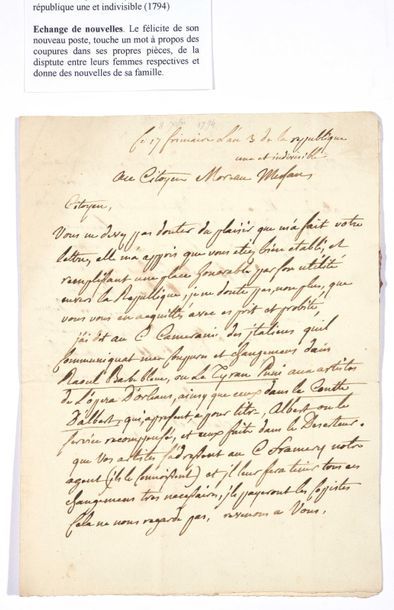 république une et indivisible (1794)
Echange de nouvelles. Le félicite de son
nouveau poste, touche un mot à propos des
coupures dans ses propres pièces, de la
disptute entre leurs femmes respectives et
donne des nouvelles de sa famille.
1794
Ce 17 frimaire L'an 3 de la republique
une et indivisible
Au Citoyen Moreau
Citoyen,
Vous ne devez pas douter du plaisir que m'a fait votre
lettre, elle m'a appris que vous etiez bien etabli, et
remplissant une place honorable par son utilité
envers la Republique, je ne doute pas, non plus, que
vous vous en acquittéz avec esprit et probité,
j'ai dit au C Camerani des italiens qu'il
communiquat mes coupures et changemens dans
Raoul Barbe bleue, ou Le Tyran Puni aux artistes
de L'opera D'orleans, ainsy que ceux dans le Comte
D'albert, qui apresent a pour titre, Albert ou le
service recompensé, et ceux faits dans le Deserteur.
que vos artistes s'adressent au C framery notre
agent (ils le connoissent) et il leur fera tenir tous ces
changemens tres necessaires, ils payeront les Copistes
Cela ne nous regarde pas, revenons a Vous,